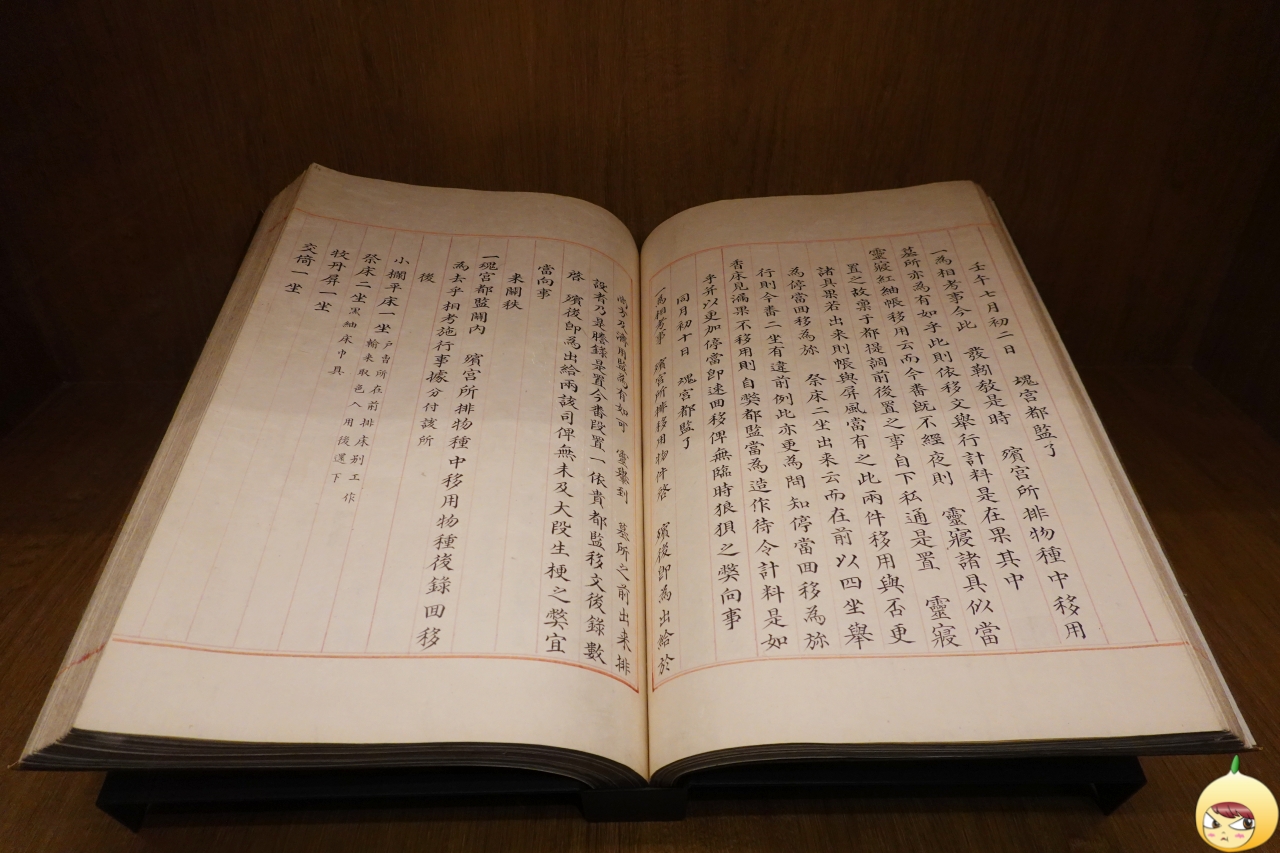 壬午七月初二日 魂宮都監了
一為相考事今此 發靷教是時 殯宮所排物種中移用
墓所亦為有如乎此則依移文舉行計料是在果其中
靈寢紅紬帳移用云而今番旣不經夜則 靈寢諸具似當
置之故稟于都提調前後置之事自下私通是置 靈寢
諸具果若出來則帳與屏風當有之此兩件移用與否更
為停當回移為旀 祭床二坐出来云而在前以四坐舉
行則今番二坐有違前例此亦更為問知停當回移為旀
香床見漏果不移用則自獘都監當為造作待令計料是如
乎并以更加停當卽速回移俾無臨時狼狽之獘向事
同月初十日 魂宮都監了
一為相考事 殯宮所排移用物件啓 殯後卽為出給於
靈轝到 墓所之前出来排
設者乃是謄錄是置今番段置一依貴都監移文後錄數
啓 殯後卽為出給兩該司俾無未及大段生梗之獘宜
當向事
来關秩
一魂宮都監關內 殯宮所排物種中移用物種後錄回移
為去乎相考施行事據分付該所
後
小欄平床一坐 戶曹所在前排床别工作 輸来取色入用後還下
祭床二坐 黑紬床巾具
牧丹屏一坐
交倚一坐